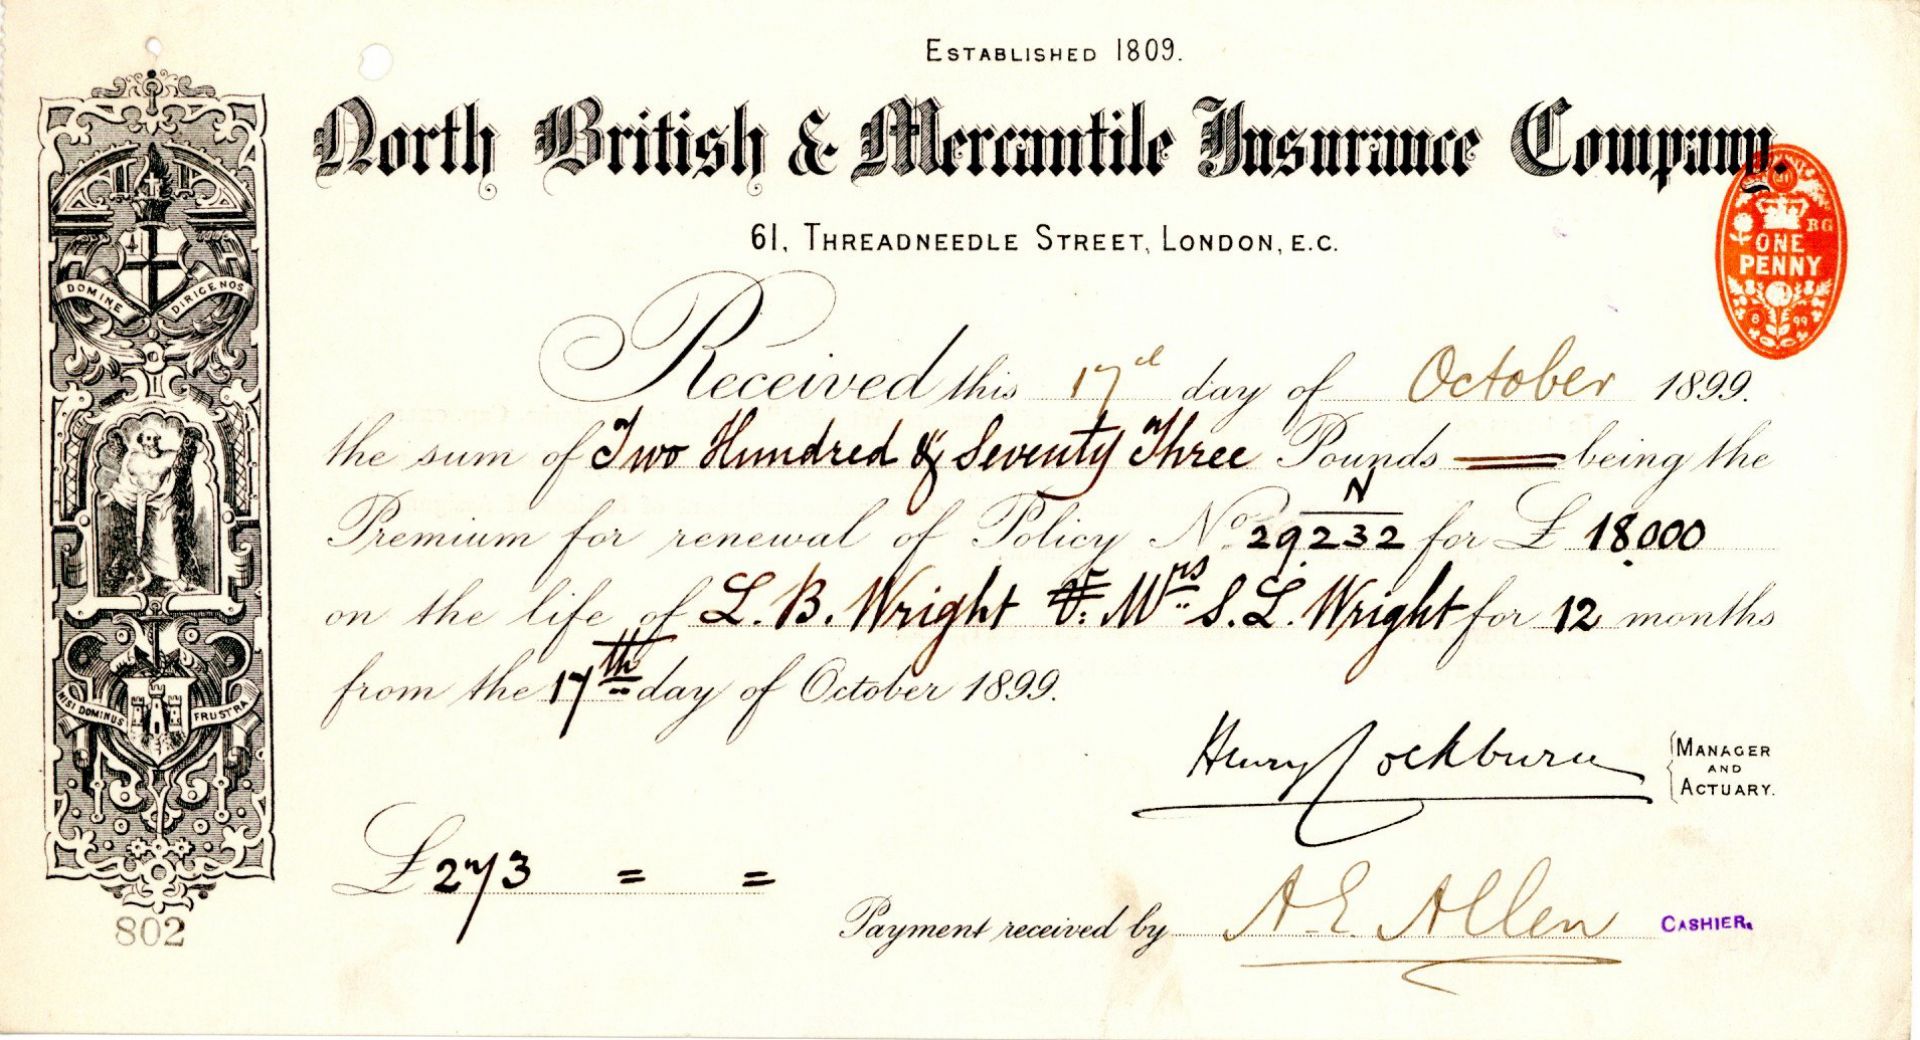 ESTABLISHED 1809.
North British & Mercantile Insurance Company.
61, THREADNEEDLE STREET, LONDON, E.C.
ONE
PENNY
BG
8 99
DOMINE DIRIGE NOS
Received this 17th day of October 1899.
the sum of Two Hundred & Seventy Three Pounds being the
Premium for renewal of Policy No. N/29232 for £ 18,000
on the life of L. B. Wright & Mrs S. L. Wright for 12 months
from the 17th day of October 1899.
NISI DOMINUS FRUSTRA
Henry Cockburn
MANAGER
AND
ACTUARY.
£ 273 = =
Payment received by A. E. Allen CASHIER.
802